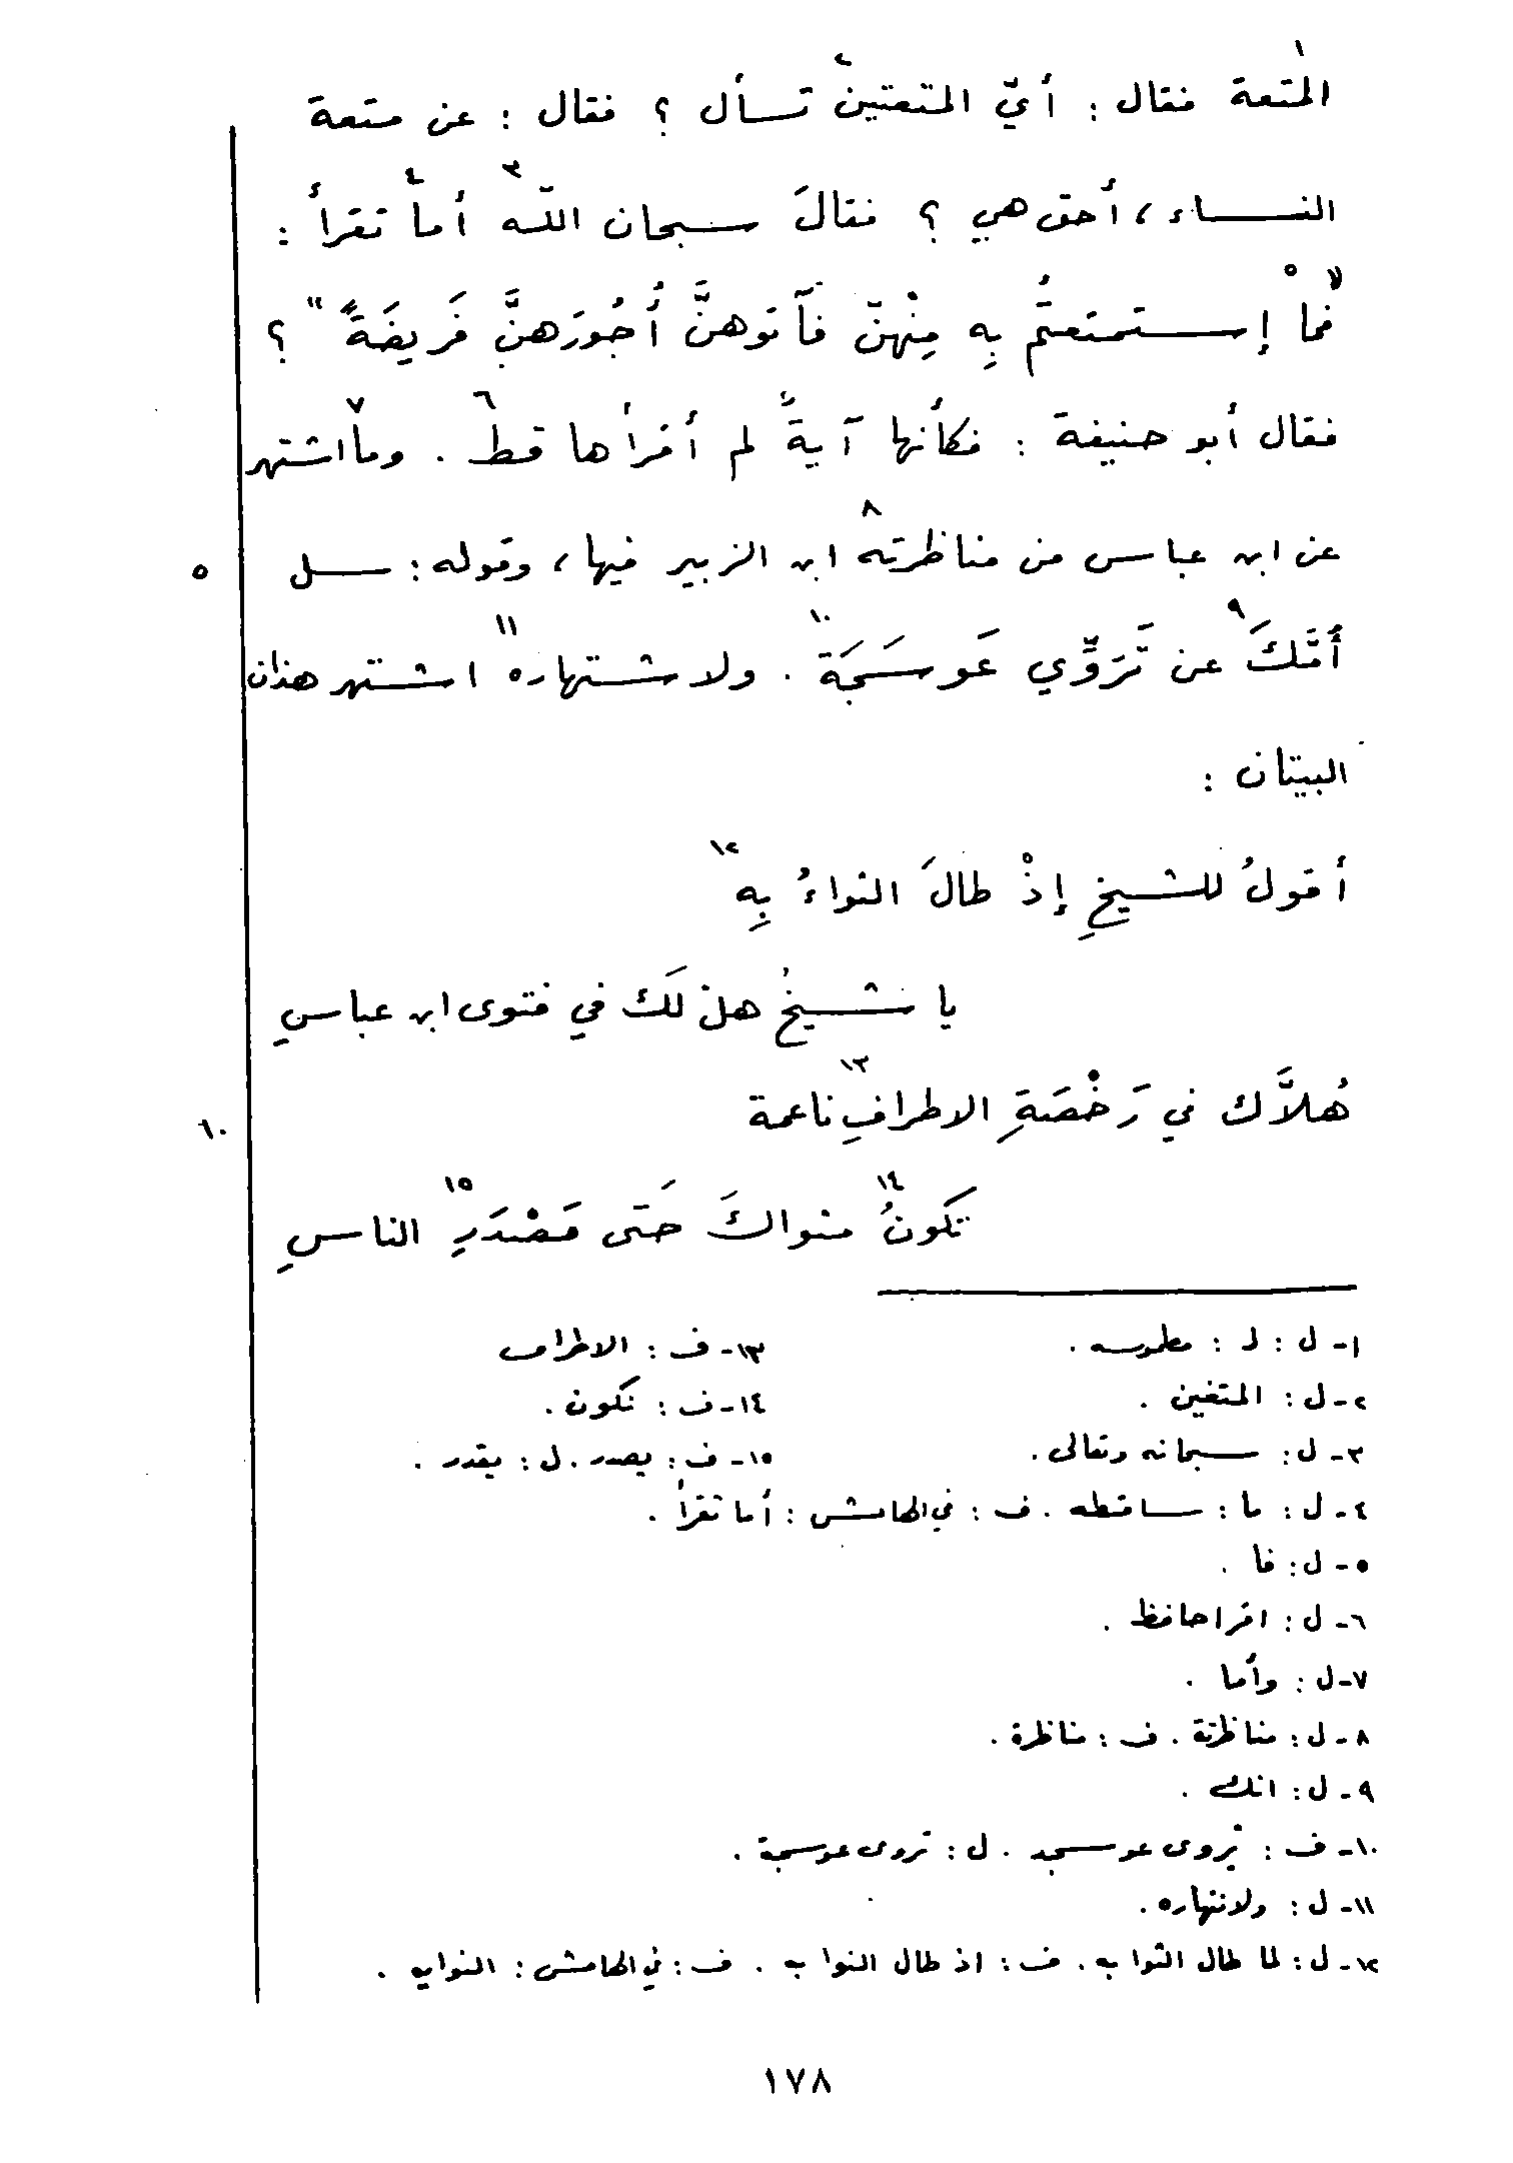 المتعة١ فقال : أيّ المتعتين٢ تسأل ؟ فقال : عن متعة
النساء ، أحق هي ؟ فقالَ سبحان اللّه٣ أما٤ تقرأ :
" فما٥ إستمتعتُم بِه مِنْهنّ فآتوهنَّ أُجُورَهنَّ فَريضَةً " ؟
فقال أبو حنيفة : فكأنها آيةٌ لم أقرأها قط٦ . وما٧ اشتهر
عن ابن عباس من مناظرته٨ ابن الزبير فيها ، وقوله : سل
٥
أُمَّكَ٩ عن تَرَوِّي عَوسَجَة١٠ . ولاشتهاره١١ اشتهر هذان
البيتان :
أقولُ للشيخِ إذْ طالَ الثواءُ بِه١٢
يا شيخُ هل لَك في فتوى ابن عباسِ
هُلاَّك في رَخْصَةِ الاطرافِ١٣ ناعمة
١٠
تكونُ١٤ مثواكَ حَتى مَصْدَرِ١٥ الناسِ
١- ل : لـ : مطموسه .
١٣- ف : الاطراف
٢- ل : المتغين .
١٤- ف : تكون .
٣- ل : سبحانه وتعالى .
١٥- ف : يصدر . ل : يقدر .
٤- ل : ما : ساقطه . ف : في الهامش : أما تقرأ .
٥- ل : فا .
٦- ل : اقراحافظ .
٧- ل : وأما .
٨- ل : مناظرتة . ف : مناظرة .
٩- ل : انك .
١٠- ف : تروى عوسجه . ل : تروى عوسجة .
١١- ل : ولانتهاره .
١٢- ل : لما طال الثوا به . ف : اذ طال النوا به . ف : في الهامش : النوابه .
١٧٨